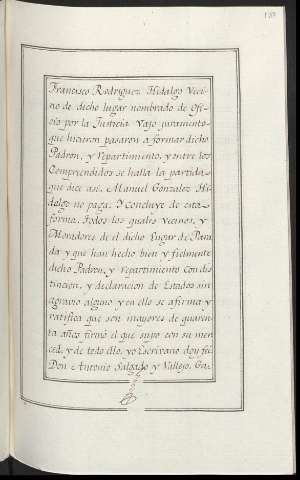 Francisco Rodriguez Hidalgo Veci-
no de dicho lugar nombrado de Ofi-
cio por la Justicia Vajo juramento
que hicieron pasaron a formar dicho
Padron, y repartimiento, y entre los
Comprendidos se halla la partida
que dice asi. Manuel Gonzalez Hi-
dalgo no paga. Y concluye de esta
forma. Todos los quales vecinos, y
Moradores de el dicho Lugar de Para-
da y que han hecho bien y fielmente
dicho Padron, y repartimiento con dis-
tincion, y declaracion de Estados sin
agravio alguno y en ello se afirma y
ratifica que son mayores de quaren-
ta años firmó el que supo con su mer-
ced, y de todo ello, yo Escrivano doy fee.
Don Antonio Salgado y Vallejo. Ga-